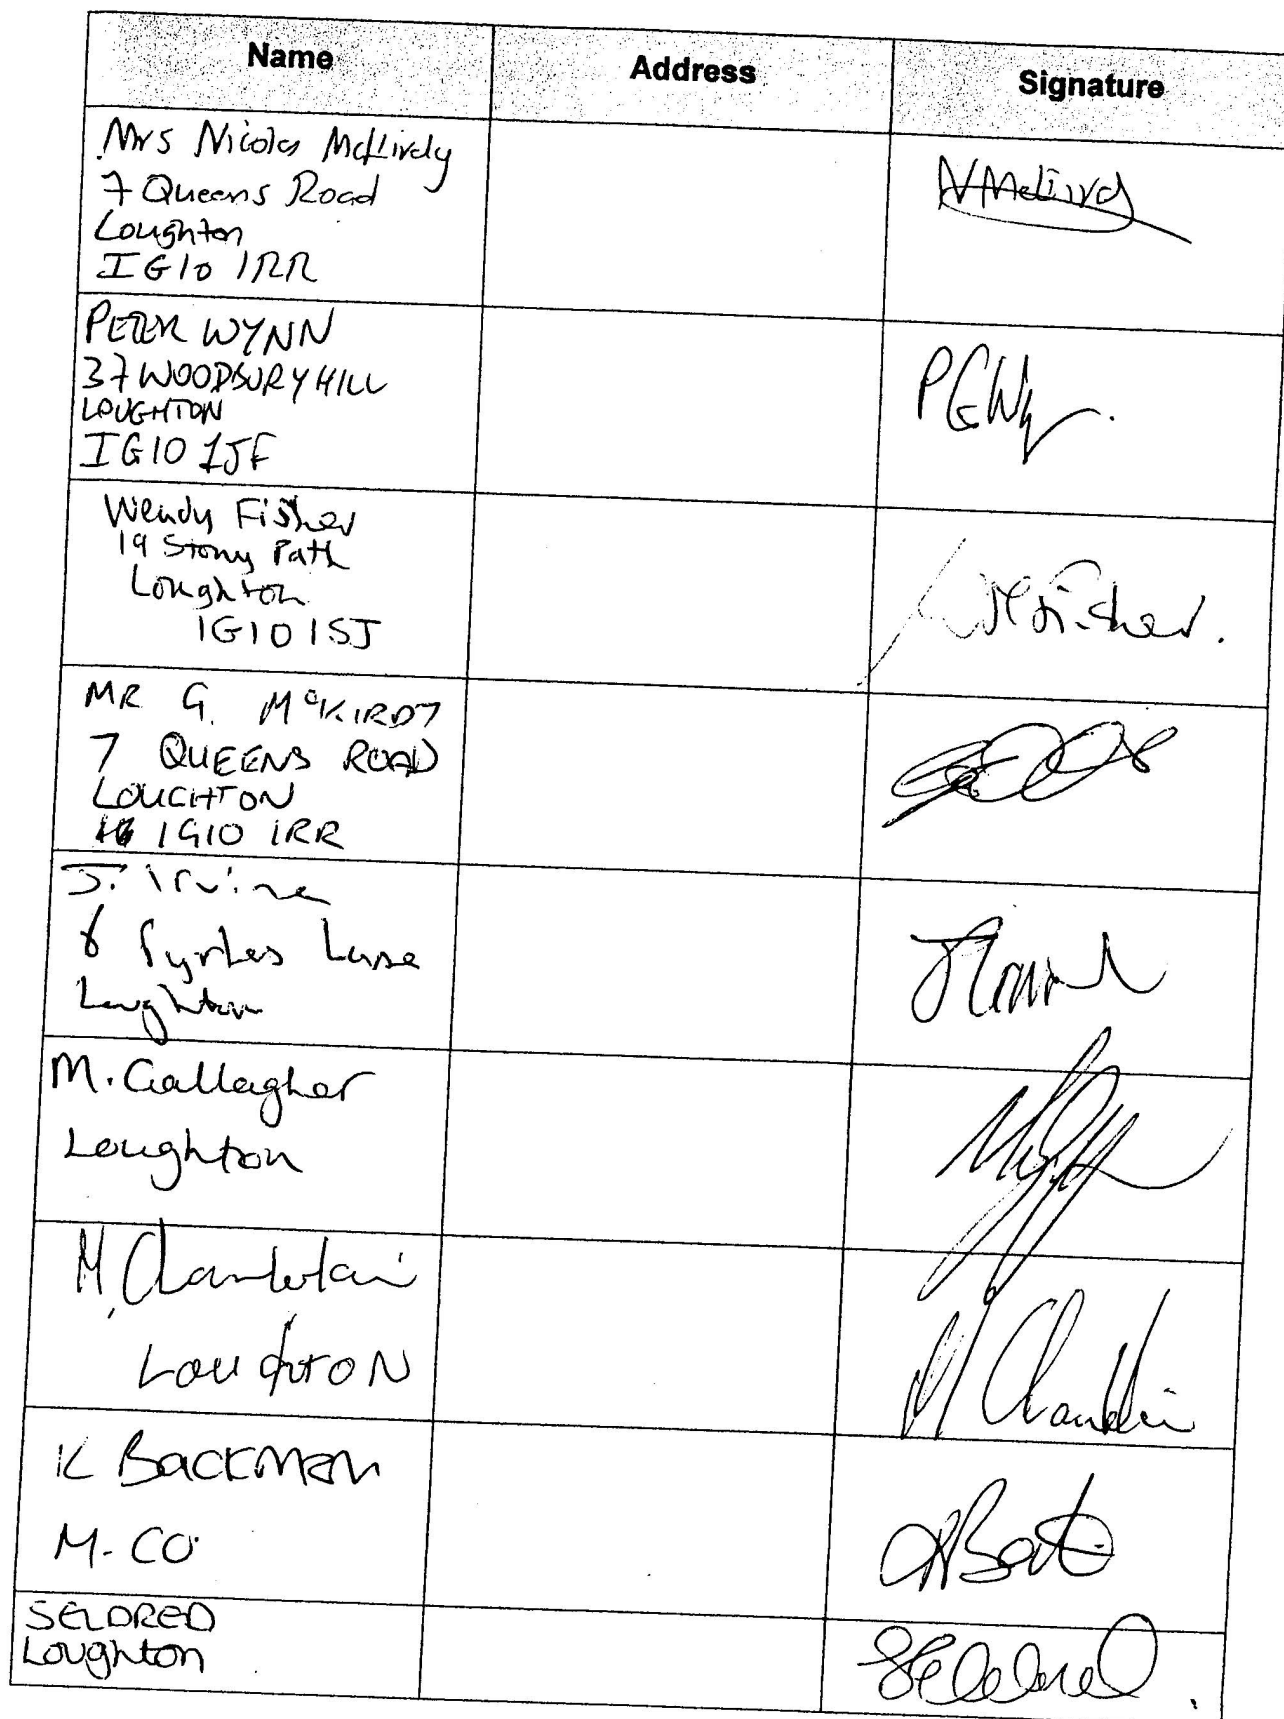 Name Address Signature
Mrs Nicola McKirdy
7 Queens Road
Loughton
IG10 1RR
PETER WYNN
37 WOODBURY HILL
LOUGHTON
IG10 1JF
Wendy Fisher
19 Stony Path
Loughton
IG10 1SJ
MR G. McKIRDY
7 QUEENS ROAD
LOUGHTON
IG10 1RR
J. Irvine
Pyrles Lane
Loughton
M. Gallagher
Loughton
M. Chamberlain
LOUGHTON
K BACKMAN
M. CO
SELDRED
Loughton